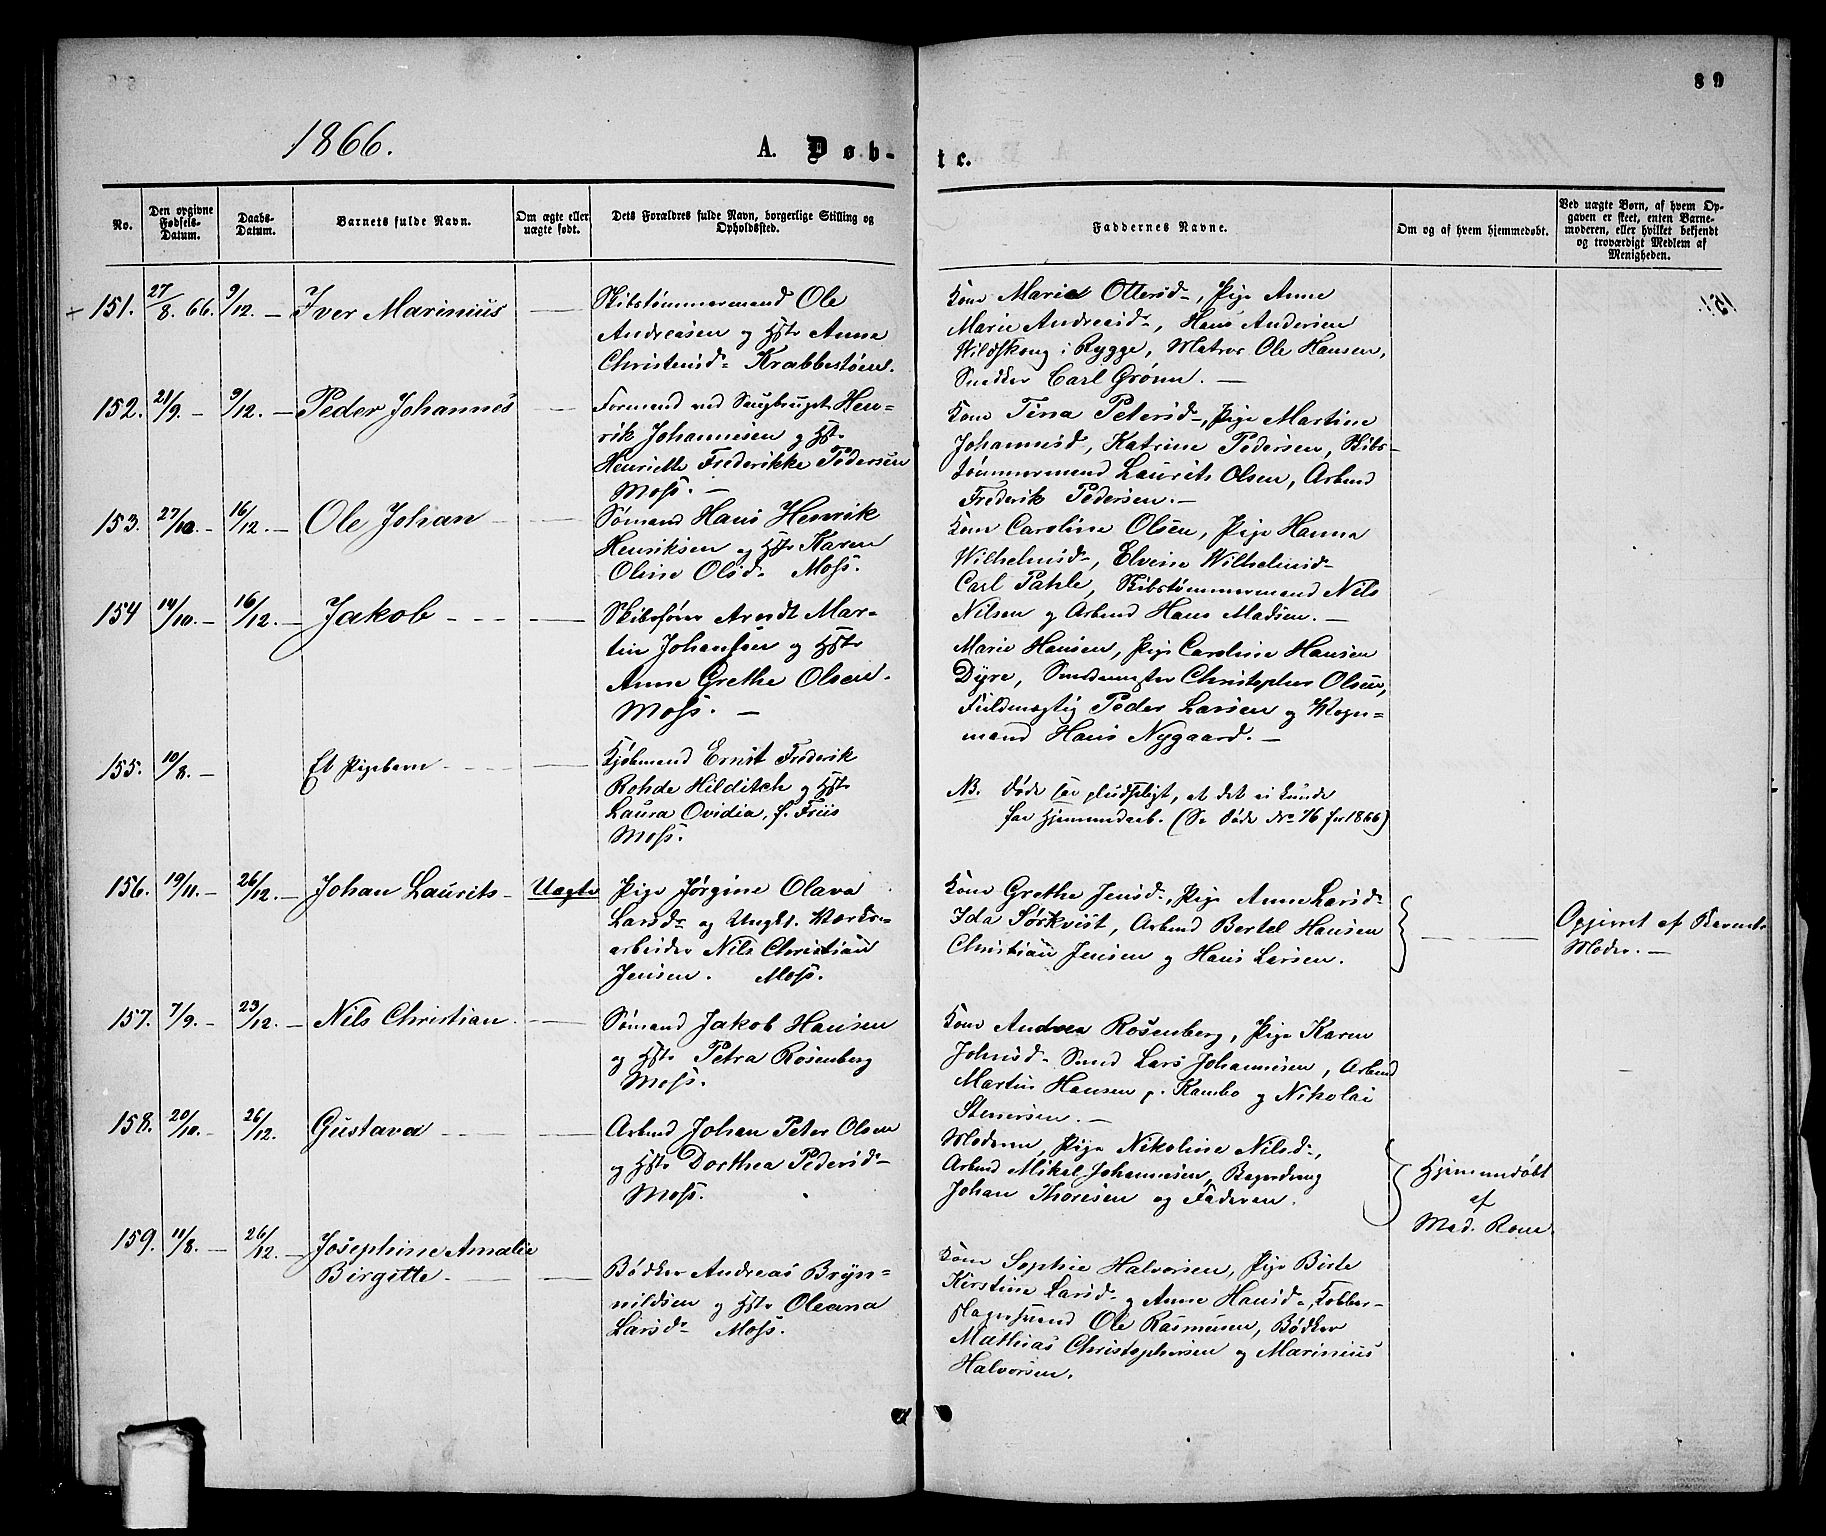 89
1866.
A. Døb-
te.
No.
Den opgivne Fødsels-Datum.
Daabs-Datum.
Barnets fulde Navn.
Om ægte eller uægte født.
Dets Forældres fulde Navn, borgerlige Stilling og Opholdssted.
Faddernes Navne.
Om og af hvem hjemmedøbt.
Ved uægte Børn, af hvem Opgaven er skeet, enten Barnemoderen, eller hvilket bekjendt og troværdigt Medlem af Menigheden.
151. 27/8. 66. 9/12. — Iver Marinius
Skibstømmermand Ole
Andreasen og Hst Anna
Christensd- Krabbestøen.
Kone Marie Ottersd-, Pige Anne
Marie Andreasd-, Hans Andersen
Vildskong i Rygge, Matros Ole Hansen,
Snedker Carl Grønn. —
152. 21/9. — 9/12. — Peder Johannes
Formand ved Hen-
rik Johannesen og Hst
Henriette Frederikke Pedersen
Moss. —
Kone Tina Petersd-, Pige Martine
Johannesd, Katrine Pedersen, Skibs-
tømmermand Laurits Olsen, Arbmd
Frederik Pedersen. —
153. 27/10. — 16/12. — Ole Johan
Sømand Hans Henrik
Henriksen og Hst Karen
Oline Olsd- Moss.
Kone Caroline Olsen, Pige Hanna
Wilhelmsd-, Elvine Wilhelmsd-
Carl Pahle, Skibstømmermand Nils
Nilsen og Arbmd Hans Madsen. —
154 14/10. — 16/12. — Jakob
Skibsfører Arndt Mar-
tin Johansen og Hst
Anne Grethe Olsen.
Moss. —
Marie Hansen, Pige Caroline Hansen
Dyre, Smedemester Christopher Olsen,
Fuldmægtig Peder Larsen og Vogn-
mand Hans Nygaard. —
155. 10/8. — Et Pigebarn
Kjøbmand Ernst Frederik
Rohde Hilditch og Hst
Laura Ovidia, f. Friis
Moss.
NB. Døde saa pludseligt, at det ei kunde
faa Hjemmedaab. (Se Døde No 76 for 1866)
156. 19/11. — 26/12. — Johan Laurits — Uægte
Pige Jørgine Olava
Larsd- og Ungk. Værks-
arbeider Nils Christian
Jensen. Moss.
Kone Grethe Jensd-, Pige Anne Larsd-
Ida Sørkvist, Arbmd Bertel Hansen
Christian Jensen og Hans Larsen.
Opgivet af Barnets
Moder. —
157. 7/9. — 23/12. — Nils Christian.
Sømand Jakob Hansen
og Hst Petra Rosenberg
Moss.
Kone Andrea Rosenberg, Pige Karen
Johnsd- Smed Lars Johannesen, Arbmd
Martin Hansen p. Kambo og Nikolai
Stenersen. —
158. 20/10. — 26/12. Gustava
Arbmd Johan Peter Olsen
og Hst Dorthea Pedersd-
Moss.
Moderen, Pige Nikoline Nilsd-,
Arbmd Mikal Johannesen, Bagerdreng
Johan Thoresen og Faderen.
Hjemmedøbt
af
Mad. Rone.
159. 11/8. — 26/12. — Josephine Amalie
Birgitte
Bødker Andreas Bryn-
nildsen og Hst Oleana
Larsd- Moss.
Kone Sophie Halvorsen, Pige Birte
Kirstine Larsd- og Anne Hansd-, Kobber-
slagersvend Ole Rasmusen, Bødker
Mathias Christophersen og Marinius
Halvorsen.